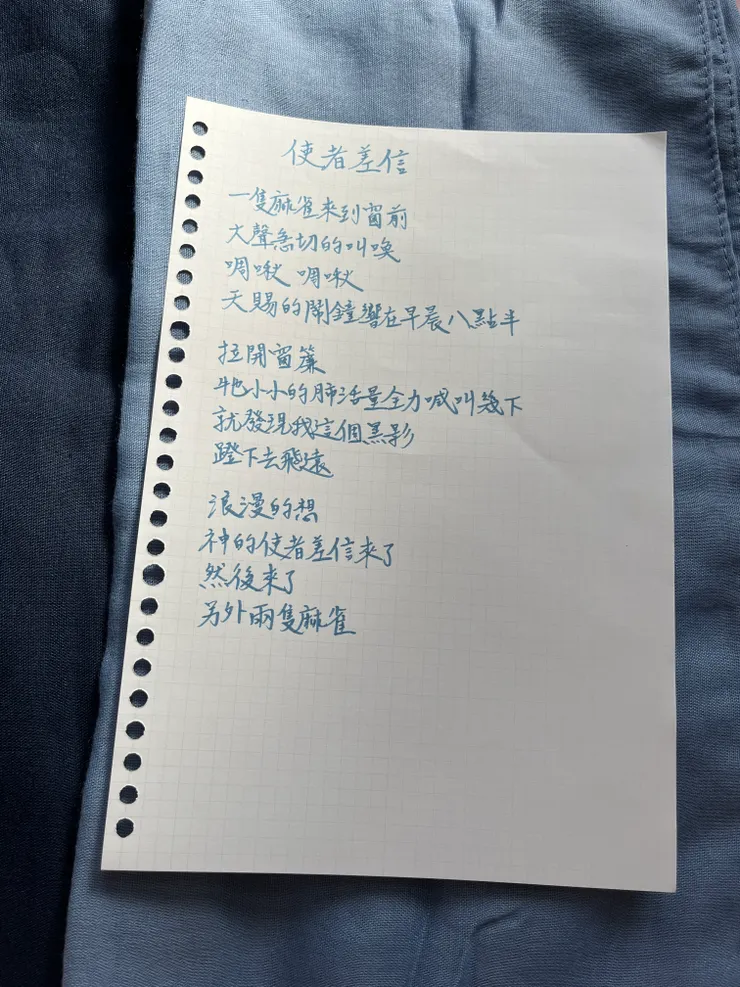 使者差信
一隻麻雀來到窗前
大聲急切的叫喚
啁啾 啁啾
天賜的鬧鐘響在早晨八點半
拉開窗簾
牠小小的肺活量全力喊叫幾下
就發現我這個黑影
蹬下去飛遠
浪漫的想
神的使者差信來了
然後來了
另外兩隻麻雀